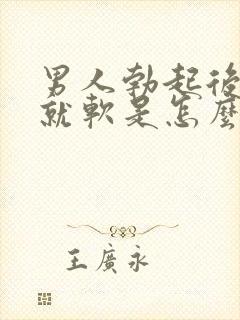 男人勃起後
就軟是怎麼
王廣永